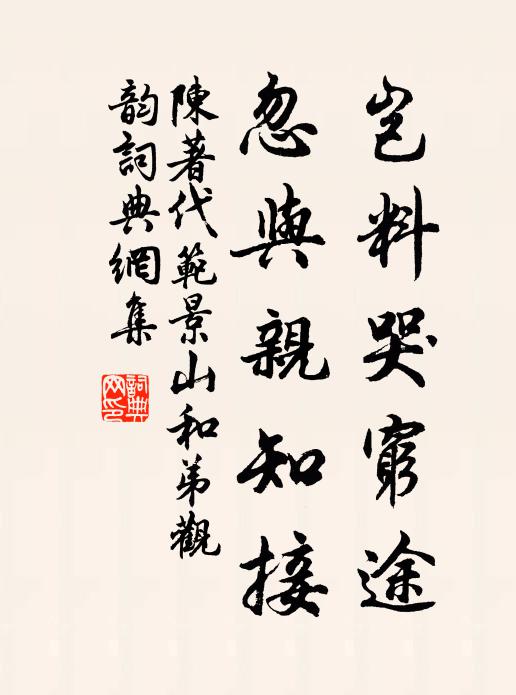 豈料哭窮途
忽與親知接
陳著代範景山和弟觀
韵詞典網集
詞典網印